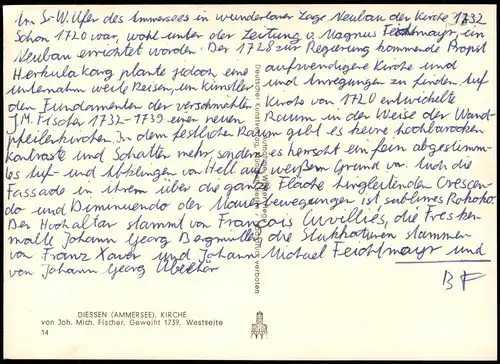 Im S-W. Ufer des Ammersees in wunderbarer Lage Neubau der Kirche 1732
Schon 1720 war, wohl unter der Leitung v. Magnus Feichtmayr, ein
Neubau errichtet worden. Der 1728 zur Regierung kommende Propst
Herkulan Karg plante jedoch eine aufwendigere Kirche und
unternahm weite Reisen, um Künstler und Anregungen zu finden. Auf
den Fundamenten der vernachten Kirche von 1720 entwickelte
J.M. Fischer 1732-1739 einen neuen Raum in der Weise der Wand-
pfeilerkirchen. In dem festlichen Raum gibt es keine hochbarocken
Kontraste und Schatten mehr, sondern es herrscht ein fein abgestimm-
tes Auf- und Abklingen von Hell auf weißem Grund vor. Auch die
Fassade in ihrem über die ganze Fläche hingleitenden Crescen-
do und Diminuendo der Mauerbewegungen ist sublimes Rokoko.
Der Hochaltar stammt von François Cuvilliés, die Fres-
malte Johann Georg Bergmüller, die Stukkaturen stammen
von Franz Xaver und Johann Michael Feichtmayr und
von Johann Georg Üblcher
BF
DIESSEN (AMMERSEE), KIRCHE
von Joh. Mich. Fischer, Geweiht 1739. Westseite
14
Deutscher Kunstverlag
verboten